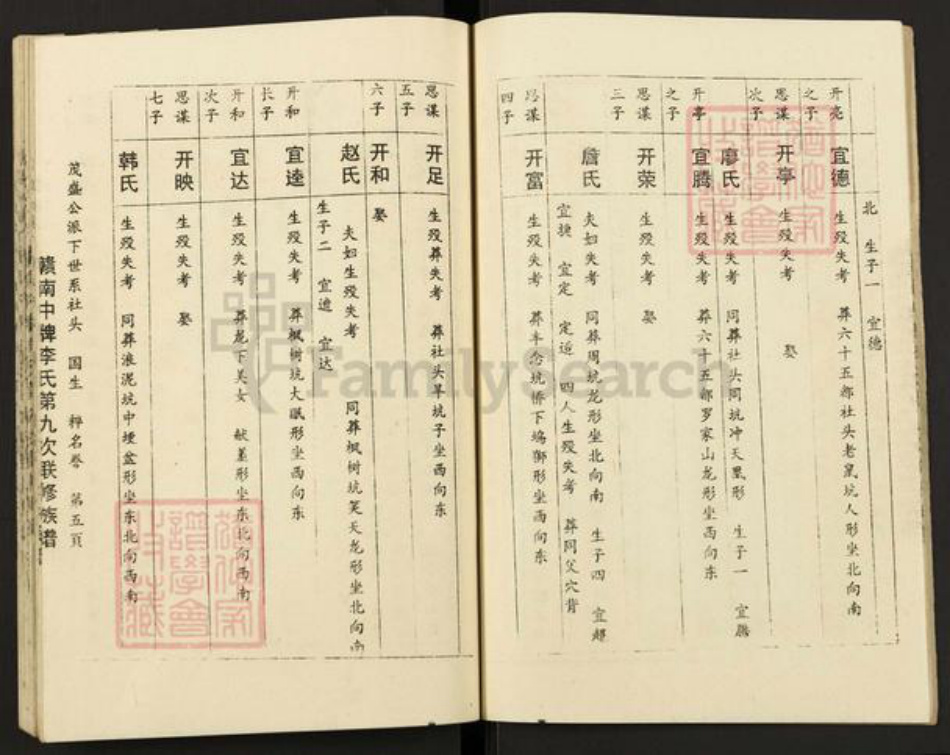 北 生子一 宜德
开亮之子 宜德 生殁失考 葬六十五都社头老鼠坑人形坐北向南
思谋次子 开亭 生殁失考 娶
廖氏 生殁失考 同葬社头同坑冲天凰形 生子一 宜腾
开亭之子 宜腾 生殁失考 葬六十五都罗家山龙形坐西向东
思谋三子 开荣 生殁失考 娶
詹氏 夫妇生殁失考 同葬周坑龙形坐北向南 生子四 宜超
宜捷 宜定 定适 四人生殁失考 葬同父穴背
思谋四子 开富 生殁失考 葬丰念坑桥下坞狮形坐西向东
思谋五子 开足 生殁葬失考 葬社头旱坑子坐西向东
六子 开和 娶
赵氏 夫妇生殁失考 同葬枫树坑笑天龙形坐北向南
生子二 宜逵 宜达
开和长子 宜逵 生殁失考 葬枫树坑大眠形坐西向东
开和次子 宜达 生殁失考 葬龙下美女献羞形坐东北向西南
思谋七子 开映 生殁失考 娶
韩氏 生殁失考 同葬浪泥坑中埂盆形坐东北向西南
茂盛公派下世系社头 国生 粹名誊 第五頁
赣南中牌李氏第九次联修族谱
FamilySearch